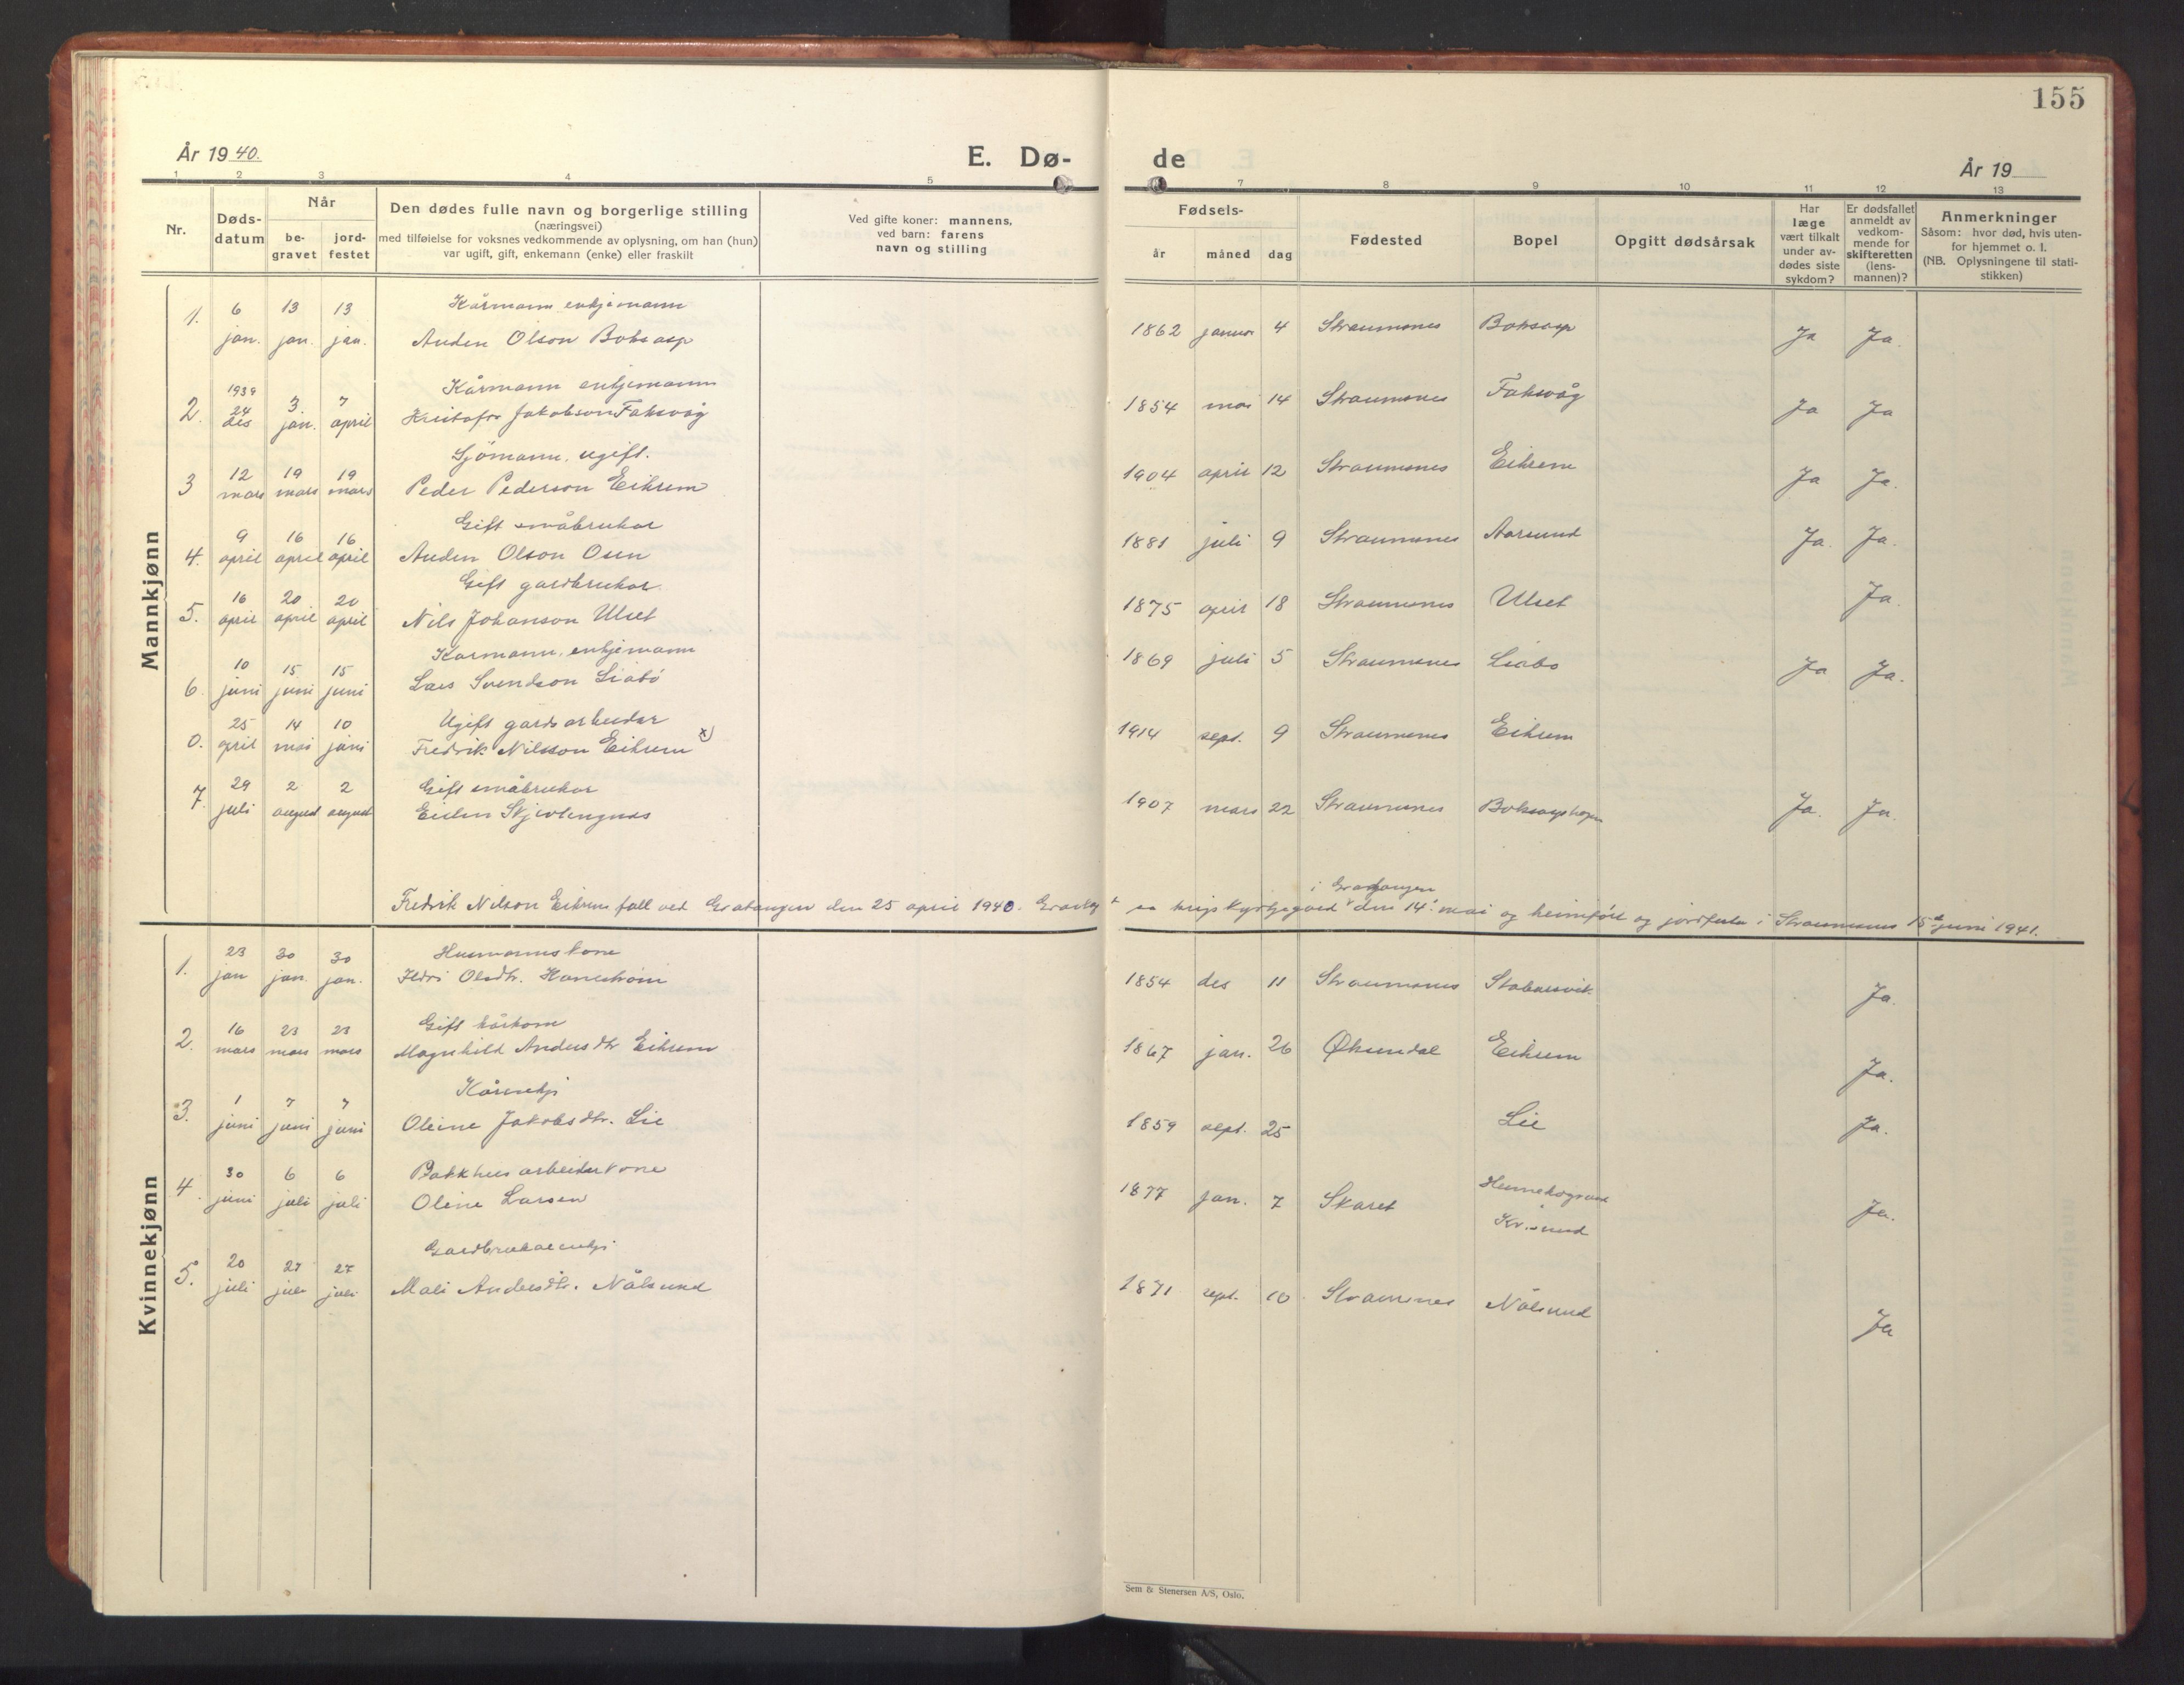 155
År 1940.
E. Dø-
de
År 19
1 2 3 4 5 7 8 9 10 11 12 13
Nr.
Døds-
datum
Når
be-
gravet
jord-
festet
Den dødes fulle navn og borgerlige stilling
(næringsvei)
med tilføielse for voksnes vedkommende av oplysning, om han (hun)
var ugift, gift, enkemann (enke) eller fraskilt
Ved gifte koner: mannens,
ved barn: farens
navn og stilling
Fødsels-
år måned dag
Fødested
Bopel
Opgitt dødsårsak
Har
læge
vært tilkalt
under av-
dødes siste
sykdom?
Er dødsfallet
anmeldt av
vedkom-
mende for
skifteretten
(lens-
mannen)?
Anmerkninger
Såsom: hvor død, hvis uten-
for hjemmet o. l.
(NB. Oplysningene til stati-
stikken)
Mannkjønn
Kårmann, enkjemann
1. 6 jan. 13 jan. 13 jan. Anders Olson Boksasp 1862 januar 4 Straumsnes Boksasp Ja Ja.
1939
Kårmann enkjemann
2. 24 des 3. jan. 7 april Kristofer Jakobson Faksvåg 1854 mai 14 Straumsnes Faksvåg Ja Ja
Sjömann, ugift.
3 12 mars 19 mars 19 mars Peder Pederson Eikrem 1904 april 12 Straumsnes Eikrem Ja Ja.
Gift småbrukar
4. 9 april 16 april 16 april Anders Olson Osen 1881 juli 9 Straumsnes Aarsund Ja. Ja.
Gift gardbrukar.
5. 16 april 20 april 20 april Nils Johanson Ulset 1875 april 18 Straumsnes Ulset Ja.
Kårmann, enkjemann
6. 10 juni 15 juni 15 juni Lars Svendson Liabö 1869 juli 5 Straumsnes Liabö Ja Ja.
Ugift gardsarbeidar
0. 25 april 14 mai 10 juni Fredrik Nilsson Eikrem x) 1914 sept. 9 Straumsnes Eikrem
Gift småbrukar
7. 29 juli 2 august 2 august 1907 mars 22 Straumsnes Boksasphagen Ja. Ja.
i Gratangen
Fredrik Nilson Eikrem fall ved Gratangen den 25 april 1940. Gravlagt krigskyrkjegard den 14. mai og heimført og jordfesta i Straumsnes 15 juni 1941.
Kvinnekjønn
Husmannskone
1. 23 jan 30 jan. 30 jan. Ildri Olsdtr. Hanestrøm 1854 des 11 Straumsnes Ja.
Gift kårkone
2. 16 mars 23 mars 23 mars Magnhild Andersdtr Eikrem 1867 jan. 26 Øksendal Eikrem Ja.
Kårenkje
3. 1 juni 7 juni 7 juni Oleine Jakobsdtr. Lie 1859 sept. 25 Lie Ja.
Bakkhusarbeidarkone
4. 30 juni 6 juli 6 juli Oline Larsen 1877 jan. 7 Skaret Kr.sund Ja.
Gardbrukarenkje
5. 20 juli 27 juli 27 juli Mali Andersdtr. Nålsund 1871 sept. 10 Straumsnes Nålsund Ja
Sem & Stenersen A/S, Oslo.